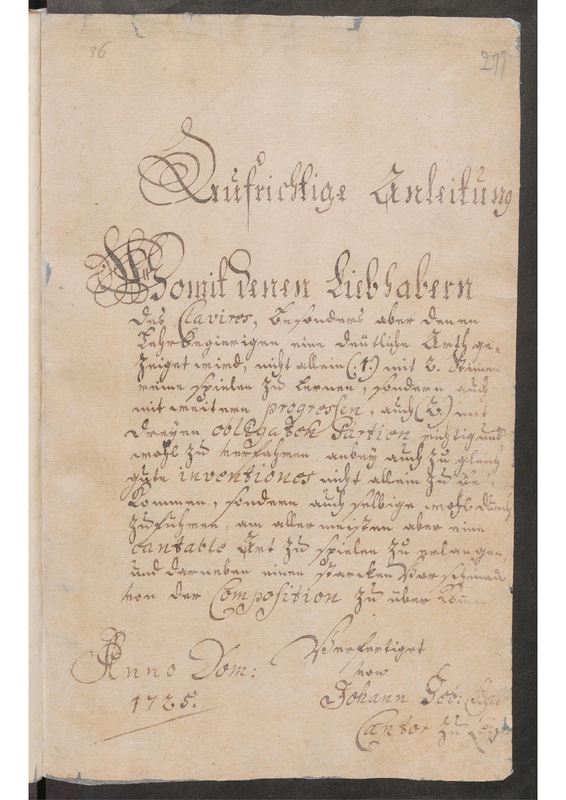 36
277
Aufrichtige Anleitung
Womit denen Liebhabern
des Clavires, besonders aber denen
Lehrbegierigen eine deütliche Arth ge-
zeiget wird, nicht allein (:1:) mit 2. Stimen
reine spielen zu lernen, sondern auch
mit weitern progressen, auch (2.) mit
dreyen obligaten Partien richtig und
wohl zu verfahren anbey auch zu gleich
gute inventiones nicht allein zu be-
kommen, sondern auch selbige wohl durch
zuführen, am allermeisten aber eine
cantable Art zu spielen zu erlangen
und darneben einen starcken Vorschmack
von der Composition zu über komen
Verfertiget
Anno Dom: von
1725. Johann Seb:
Cantor zu